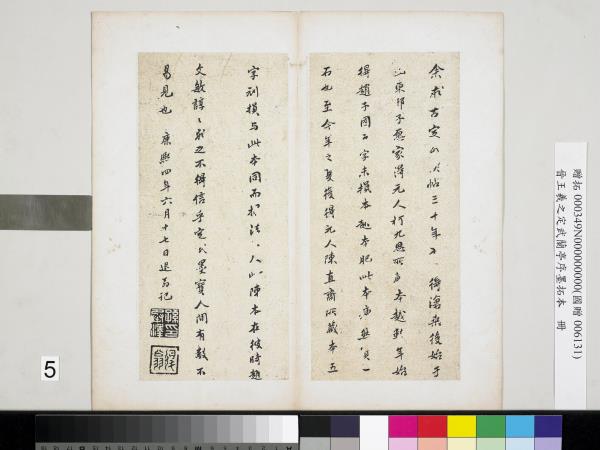 余求古定武帖三十年不得滄桑後始于
山東邢子愿家得元人柯九思所藏本越數年始
得趙子固五字未損本趙本肥此本瘦然真一
石也至今年之夏復得元人陳直齋所藏本五
字刓損與此本同而拓法人此陳本在彼時趙
文敏諄諄求之不得信乎定武墨寶人間有數不
易見也 康熙四年六月十七日退翁記
贈拓 000349N000000000(國贈 006131)
晉王羲之定武蘭亭序墨拓本 冊
5